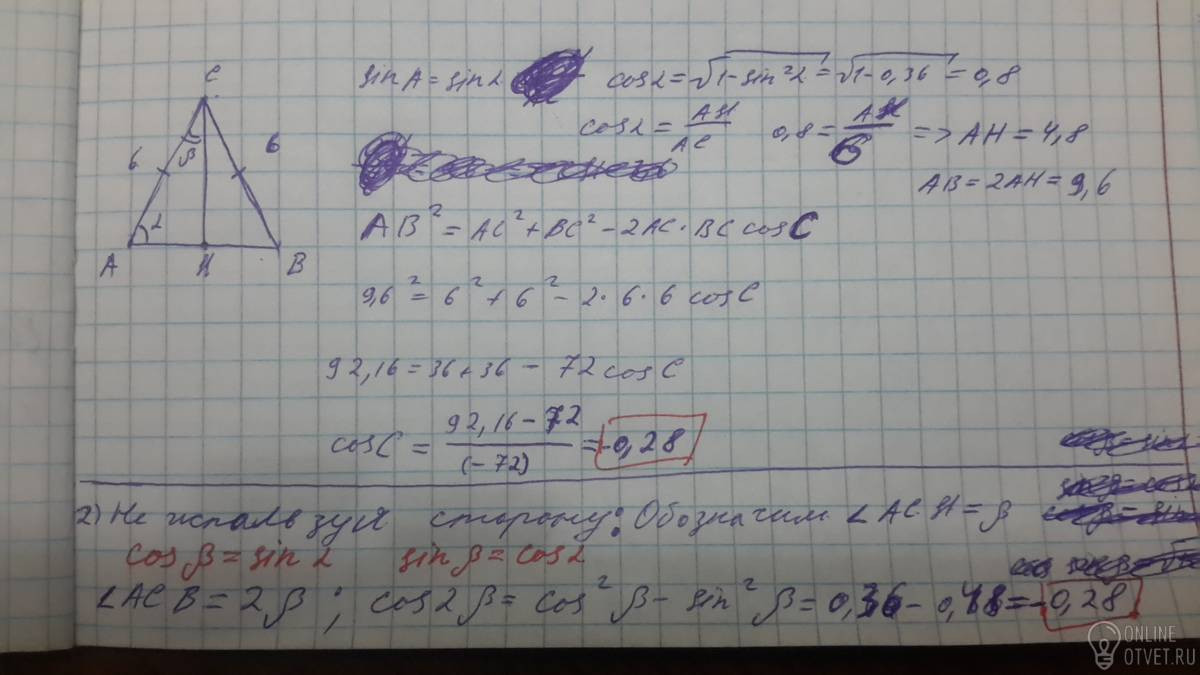 C
6 β 6
A α H B
sin A = sin α
cos α = √1-sin²α = √1-0,36 = 0,8
cos α = AH/AC 0,8 = AH/6 => AH = 4,8
AB = 2AH = 9,6
AB² = AC² + BC² - 2AC · BC cos C
9,6² = 6² + 6² - 2 · 6 · 6 cos C
92,16 = 36 + 36 - 72 cos C
cos C = 92,16 - 72/(-72) = -0,28
2) Не используя сторону: Обозначим ∠ACH = β
cos β = sin α sin β = cos α
∠ACB = 2β ; cos 2β = cos² β - sin² β = 0,36 - = -0,28
ONLINE
OTVET.RU